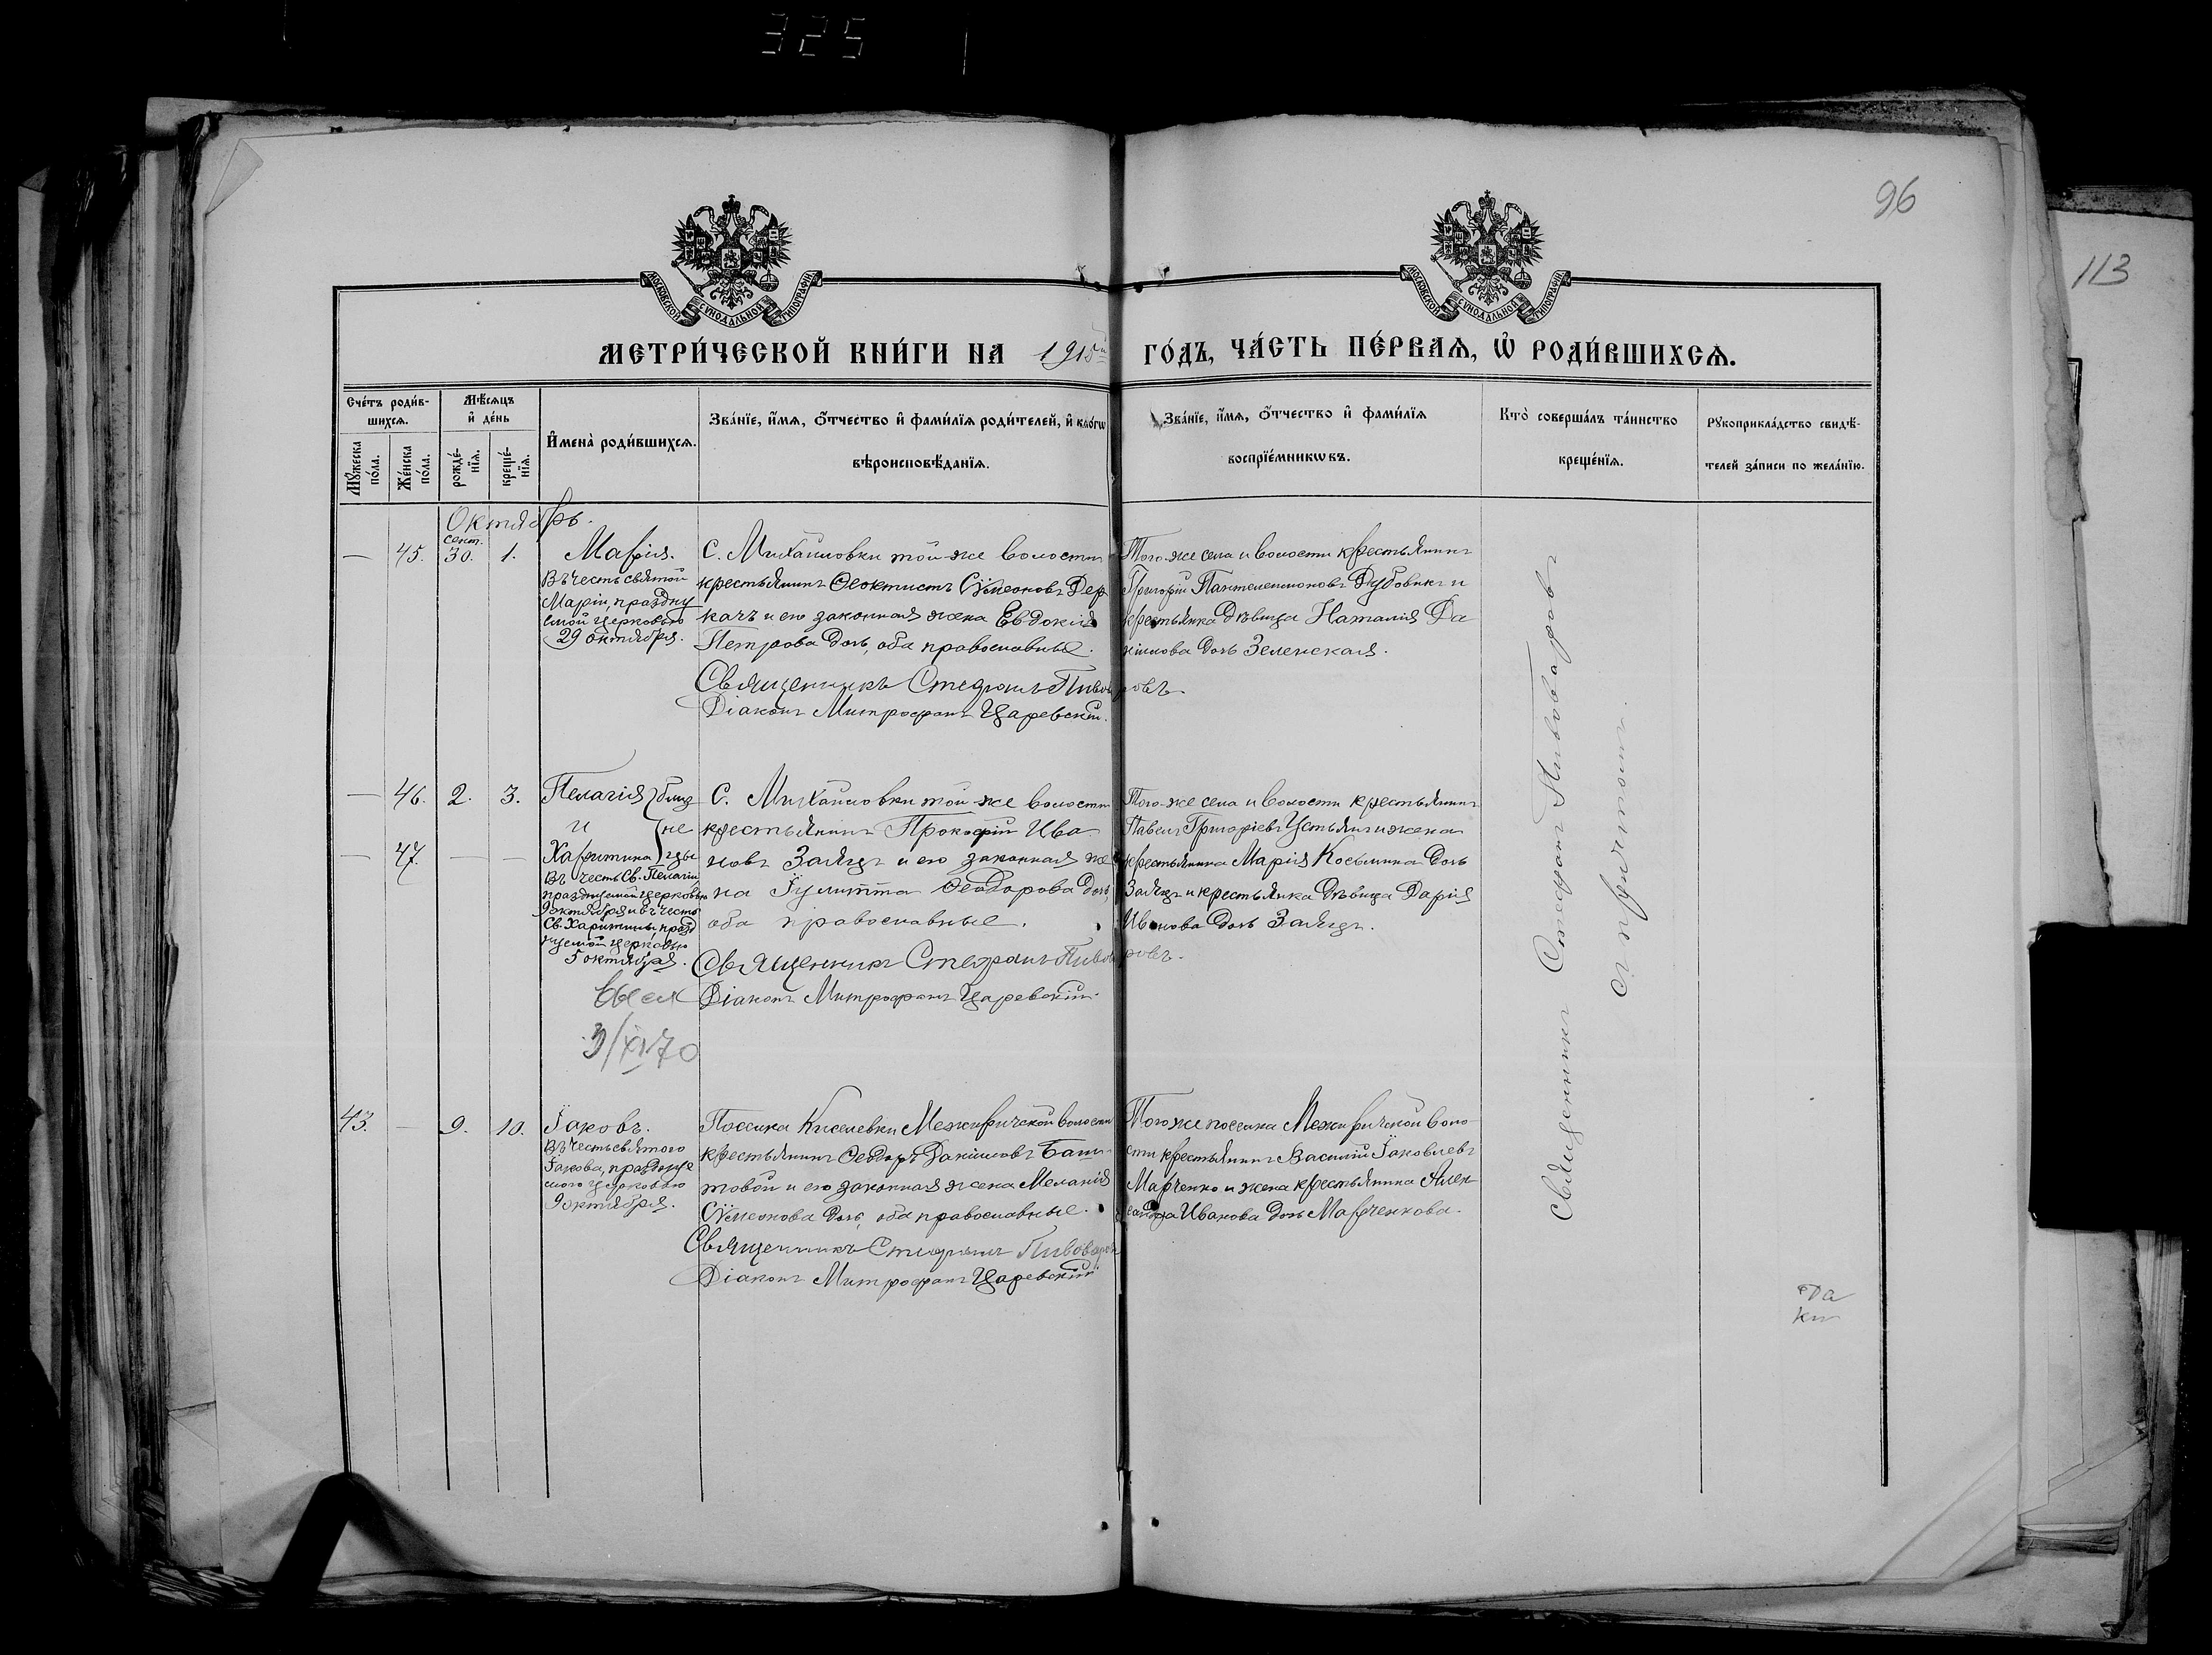 325
96
113
МОСКОВСКОЙ СУНОДАЛЬНОЙ ТИПОГРАФІИ
МОСКОВСКОЙ СУНОДАЛЬНОЙ ТИПОГРАФІИ
МЕТРИ́ЧЕСКОЙ КНИ́ГИ НА 1915й ГО́ДЪ, ЧА́СТЬ ПЕ́РВАѦ, Ѡ҆ РОДИ́ВШИХСѦ.
Сче́тъ роди́в-
шихсѧ.
Мꙋ́жеска
по́ла.
Же́нска
по́ла.
Мѣ́сѧцъ
и҆ де́нь
рожде́-
нїѧ.
креще́-
нїѧ.
И҆мена̀ роди́вшихсѧ.
Зва́нїе, и҆́мѧ, ѻ҆́тчество и҆ фами́лїѧ роди́телей, и҆ како́гѡ
вѣроисповѣ́данїѧ.
Зва́нїе, и҆́мѧ, ѻ҆́тчество и҆ фами́лїѧ
воспрїе́мникѡвъ.
Кто̀ соверша́лъ та́инство
креще́нїѧ.
Рꙋкоприкла́дство свидѣ́-
телей за́писи по жела́нїю.
Октябрь.
сент.
— 45. 30. 1.
Марія.
Въ честь святой
Маріи, праздну
емой церковью
29 октября.
С. Михайловки той-же волости
крестьянинъ Ѳеоктистъ Сѵмеоновъ Дер
качъ и его законная жена Евдокія
Петрова дочь, оба православные.
Священникъ Стефанъ Пивоваровъ.
Діаконъ Митрофанъ Царевскій.
Того-же села и волости крестьянинъ
Григорій Пантелеимоновъ Дубовикъ и
крестьянка дѣвица Наталія Да
ніилова дочь Зеленская.
— 46. 2. 3.
— 47. — —
Пелагія
и
Харитина
близ
не
цы
Въ честь Св. Пелагіи
празднуемой церковью
9 октября и въ честь
Св. Харитины, празд
нуемой церковью
5 октября.
3/XI 70
С. Михайловки той же волости
крестьянинъ Прокофій Ива
новъ Заяцъ и его законная же
на Іулитта Ѳеодорова дочь,
оба православные.
Священникъ Стефанъ Пивоваровъ.
Діаконъ Митрофанъ Царевскій.
Того-же села и волости крестьянинъ
Павелъ Григоріевъ Устьянъ и жена
крестьянина Марія Косьмина дочь
Заяцъ и крестьянка дѣвица Дарія
Иванова дочь Заяцъ.
43. — 9. 10.
Іаковъ.
Въ честь святого
Іакова, праздное
мого церковью
9 октября.
Поселка Киселевки Межиричской волости
крестьянинъ Ѳеодоръ Даніиловъ Баш-
товой и его законная жена Меланія
Сѵмеонова дочь, оба православные.
Священникъ Стефанъ Пивоваровъ
Діаконъ Митрофанъ Царевскій
Того же поселка Межиричской воло
сти крестьянинъ Василій Іаковлевъ
Марченко и жена крестьянина Алек
сандра Иванова дочь Марченкова.
Священникъ Стефанъ Пивоваровъ
съ причтомъ.